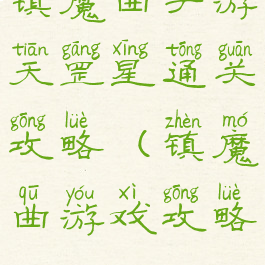 镇魔曲手游
tiān gāng xīng tōng guān
天罡星通关
gōng lüè zhèn mó
攻略（镇魔
qū yóu xì gōng lüè
曲游戏攻略